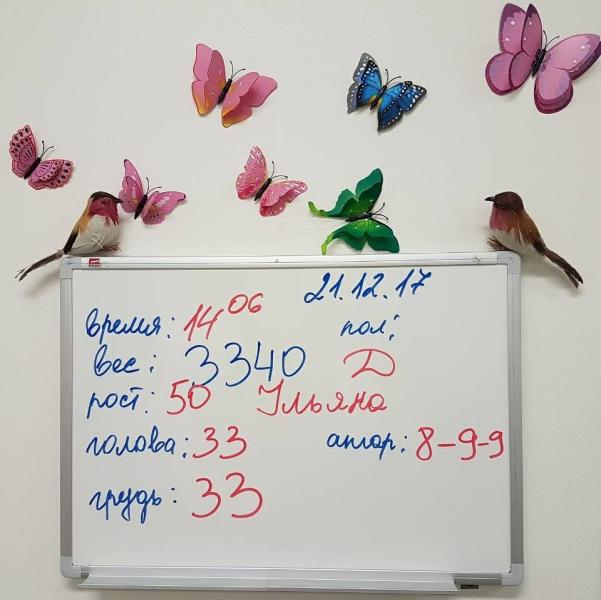 21.12.17
время: 14 06
пол:
вес: 3340 Д
рост: 50 Ульяна
голова: 33 апгар: 8-9-9
грудь: 33